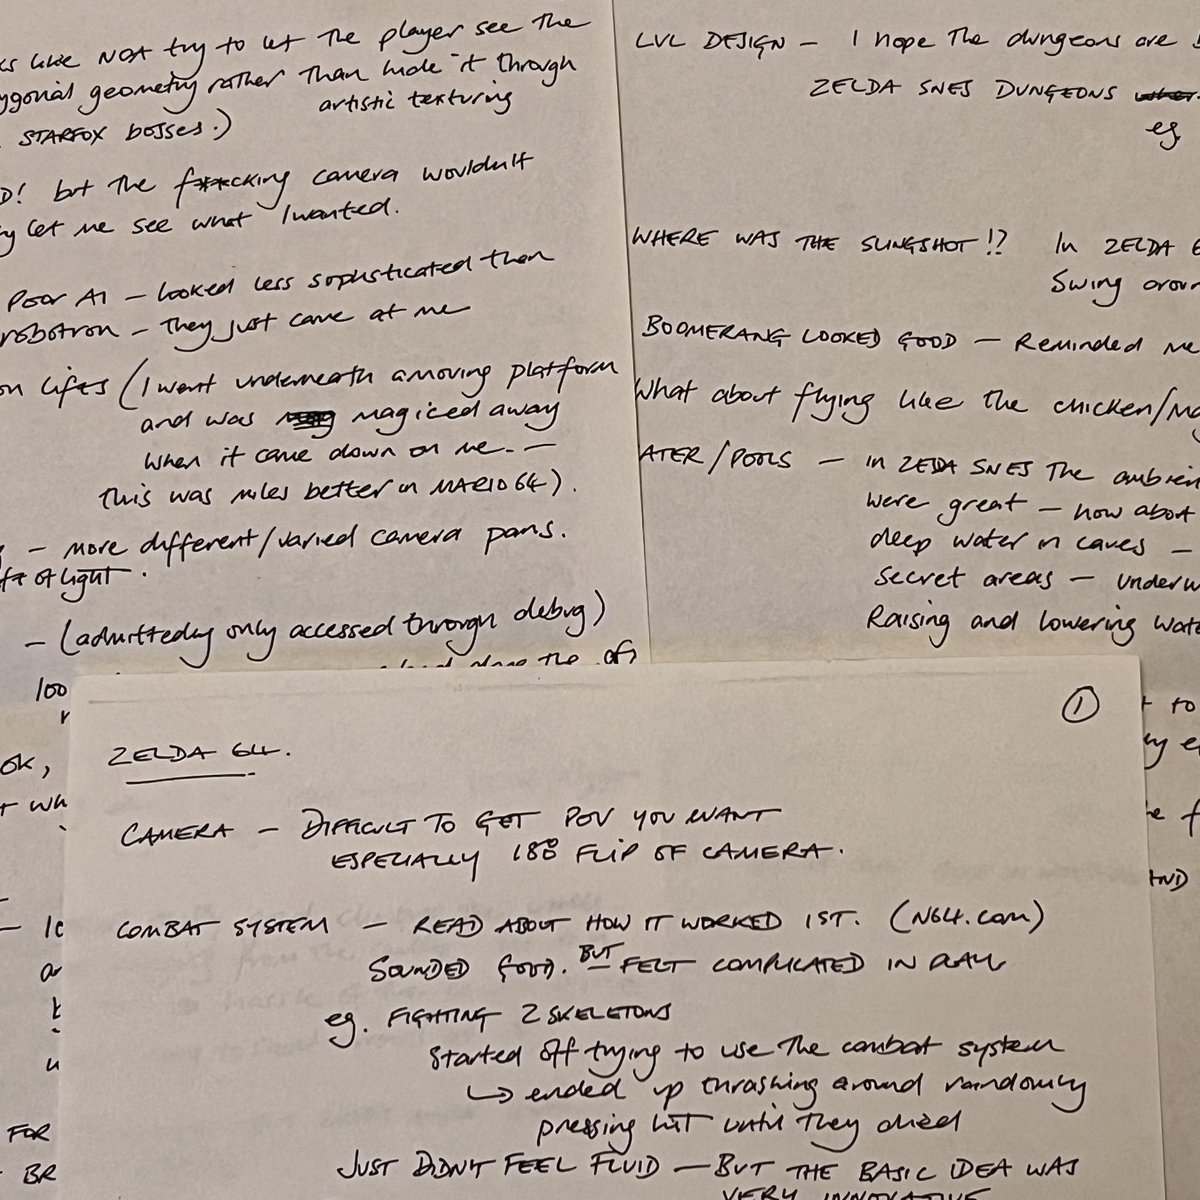 like NOT try to let the player see the
geometry rather than hide it through
artistic texturing
STARFOX bosses.)
D! but the f**cking camera wouldn't
let me see what I wanted.
Poor AI – looked less sophisticated than
robotron – they just came at me
on lifts (I went underneath a moving platform
and was magiced away
when it came down on me. –
this was miles better in MARIO 64).
– more different/varied camera pans.
of light.
– (admittedly only accessed through debug)
along the
100
ok,
FOR
BR
LVL DESIGN – I hope the dungeons are
ZELDA SNES DUNGEONS
eg
WHERE WAS THE SLINGSHOT!? In ZELDA 6
Swing aroun
BOOMERANG LOOKED GOOD – Reminded me
What about flying like the chicken/
ATER/POOLS – in ZEDA SNES the ambien
were great – how about
deep water in caves –
secret areas – underw
Raising and lowering wate
to
AND
1
ZELDA 64.
CAMERA – DIFFICULT TO GET POV YOU WANT
ESPECIALLY 180 FLIP OF CAMERA.
COMBAT SYSTEM – READ ABOUT HOW IT WORKED 1ST. (N64.com)
SOUNDED GOOD. BUT FELT COMPLICATED IN PLAY
eg. FIGHTING 2 SKELETONS
Started off trying to use the combat system
↳ ended up thrashing around randomly
pressing hit until they died
JUST DIDN'T FEEL FLUID – BUT THE BASIC IDEA WAS
VERY INNOVATIVE